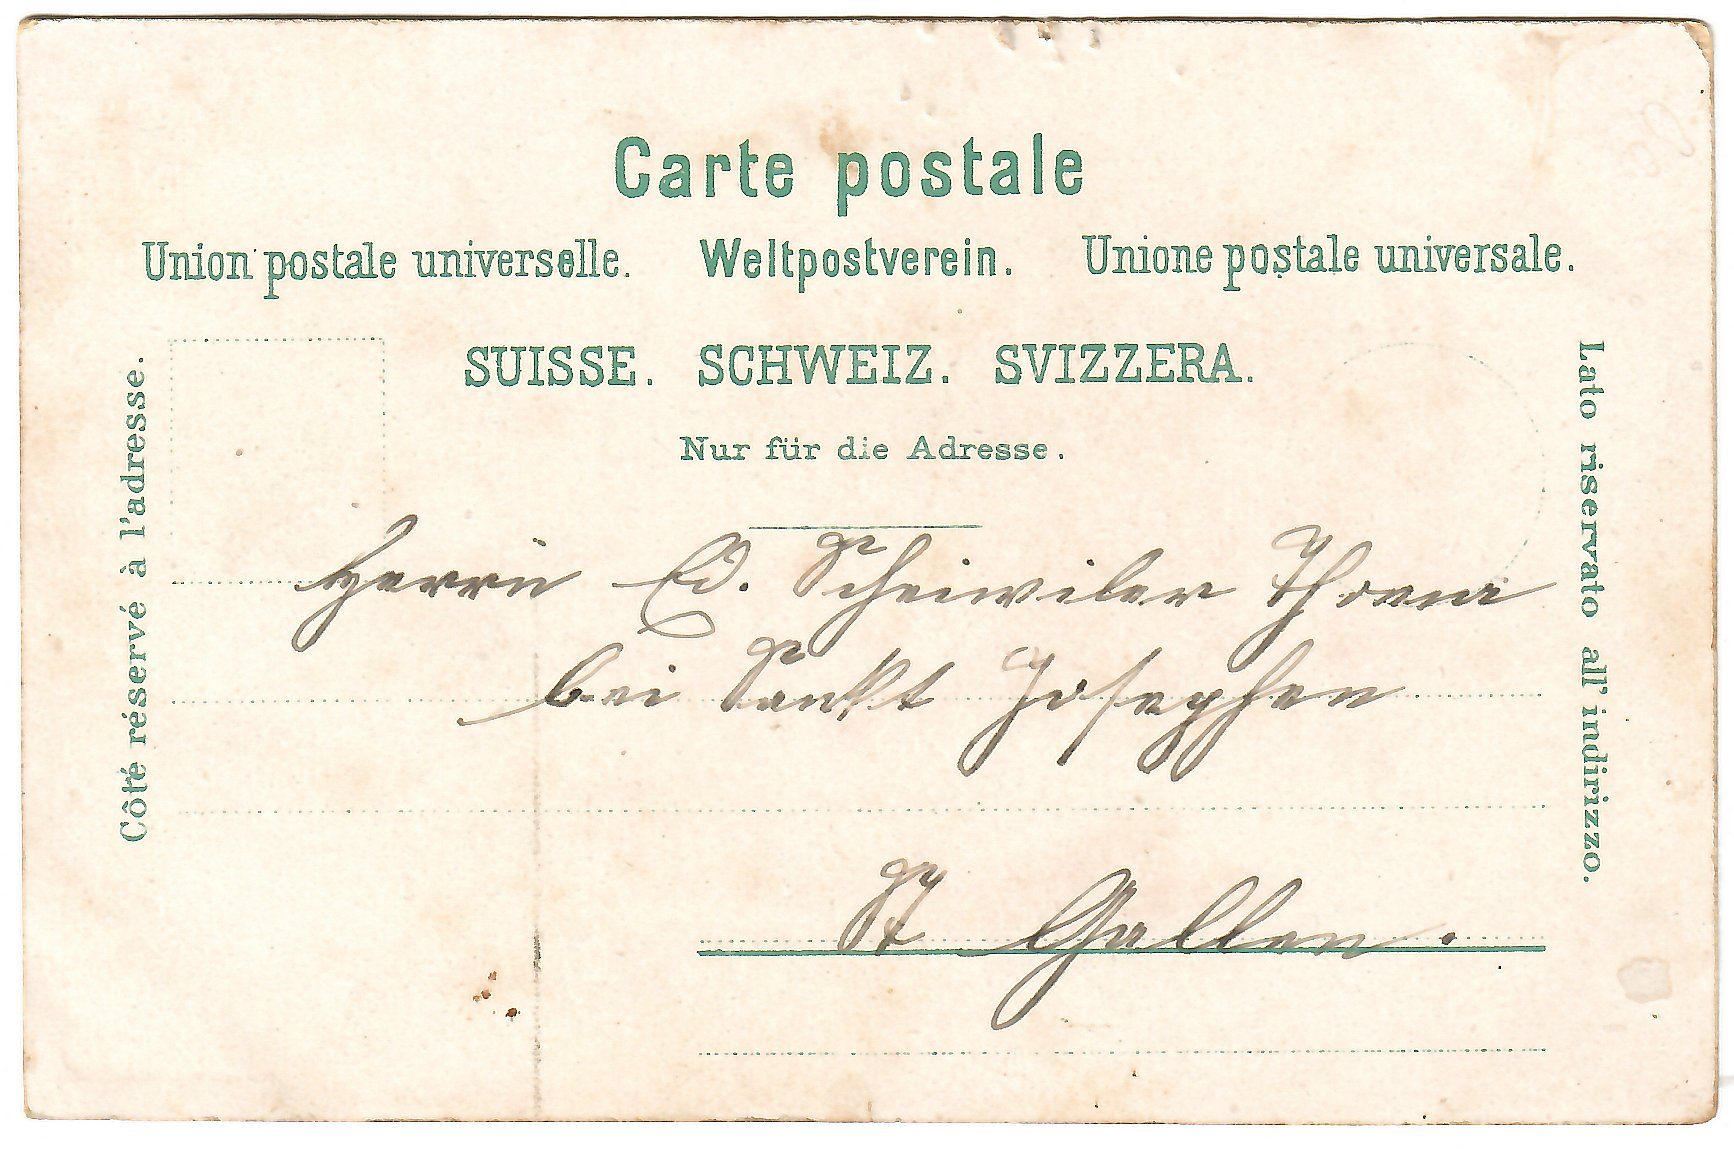 Carte postale
Union postale universelle. Weltpostverein. Unione postale universale.
SUISSE. SCHWEIZ. SVIZZERA.
Nur für die Adresse.
Côté réservé à l'adresse.
Lato riservato all' indirizzo.
Herrn Ed. Scheiwiler
bei Sankt Josephen
St Gallen.